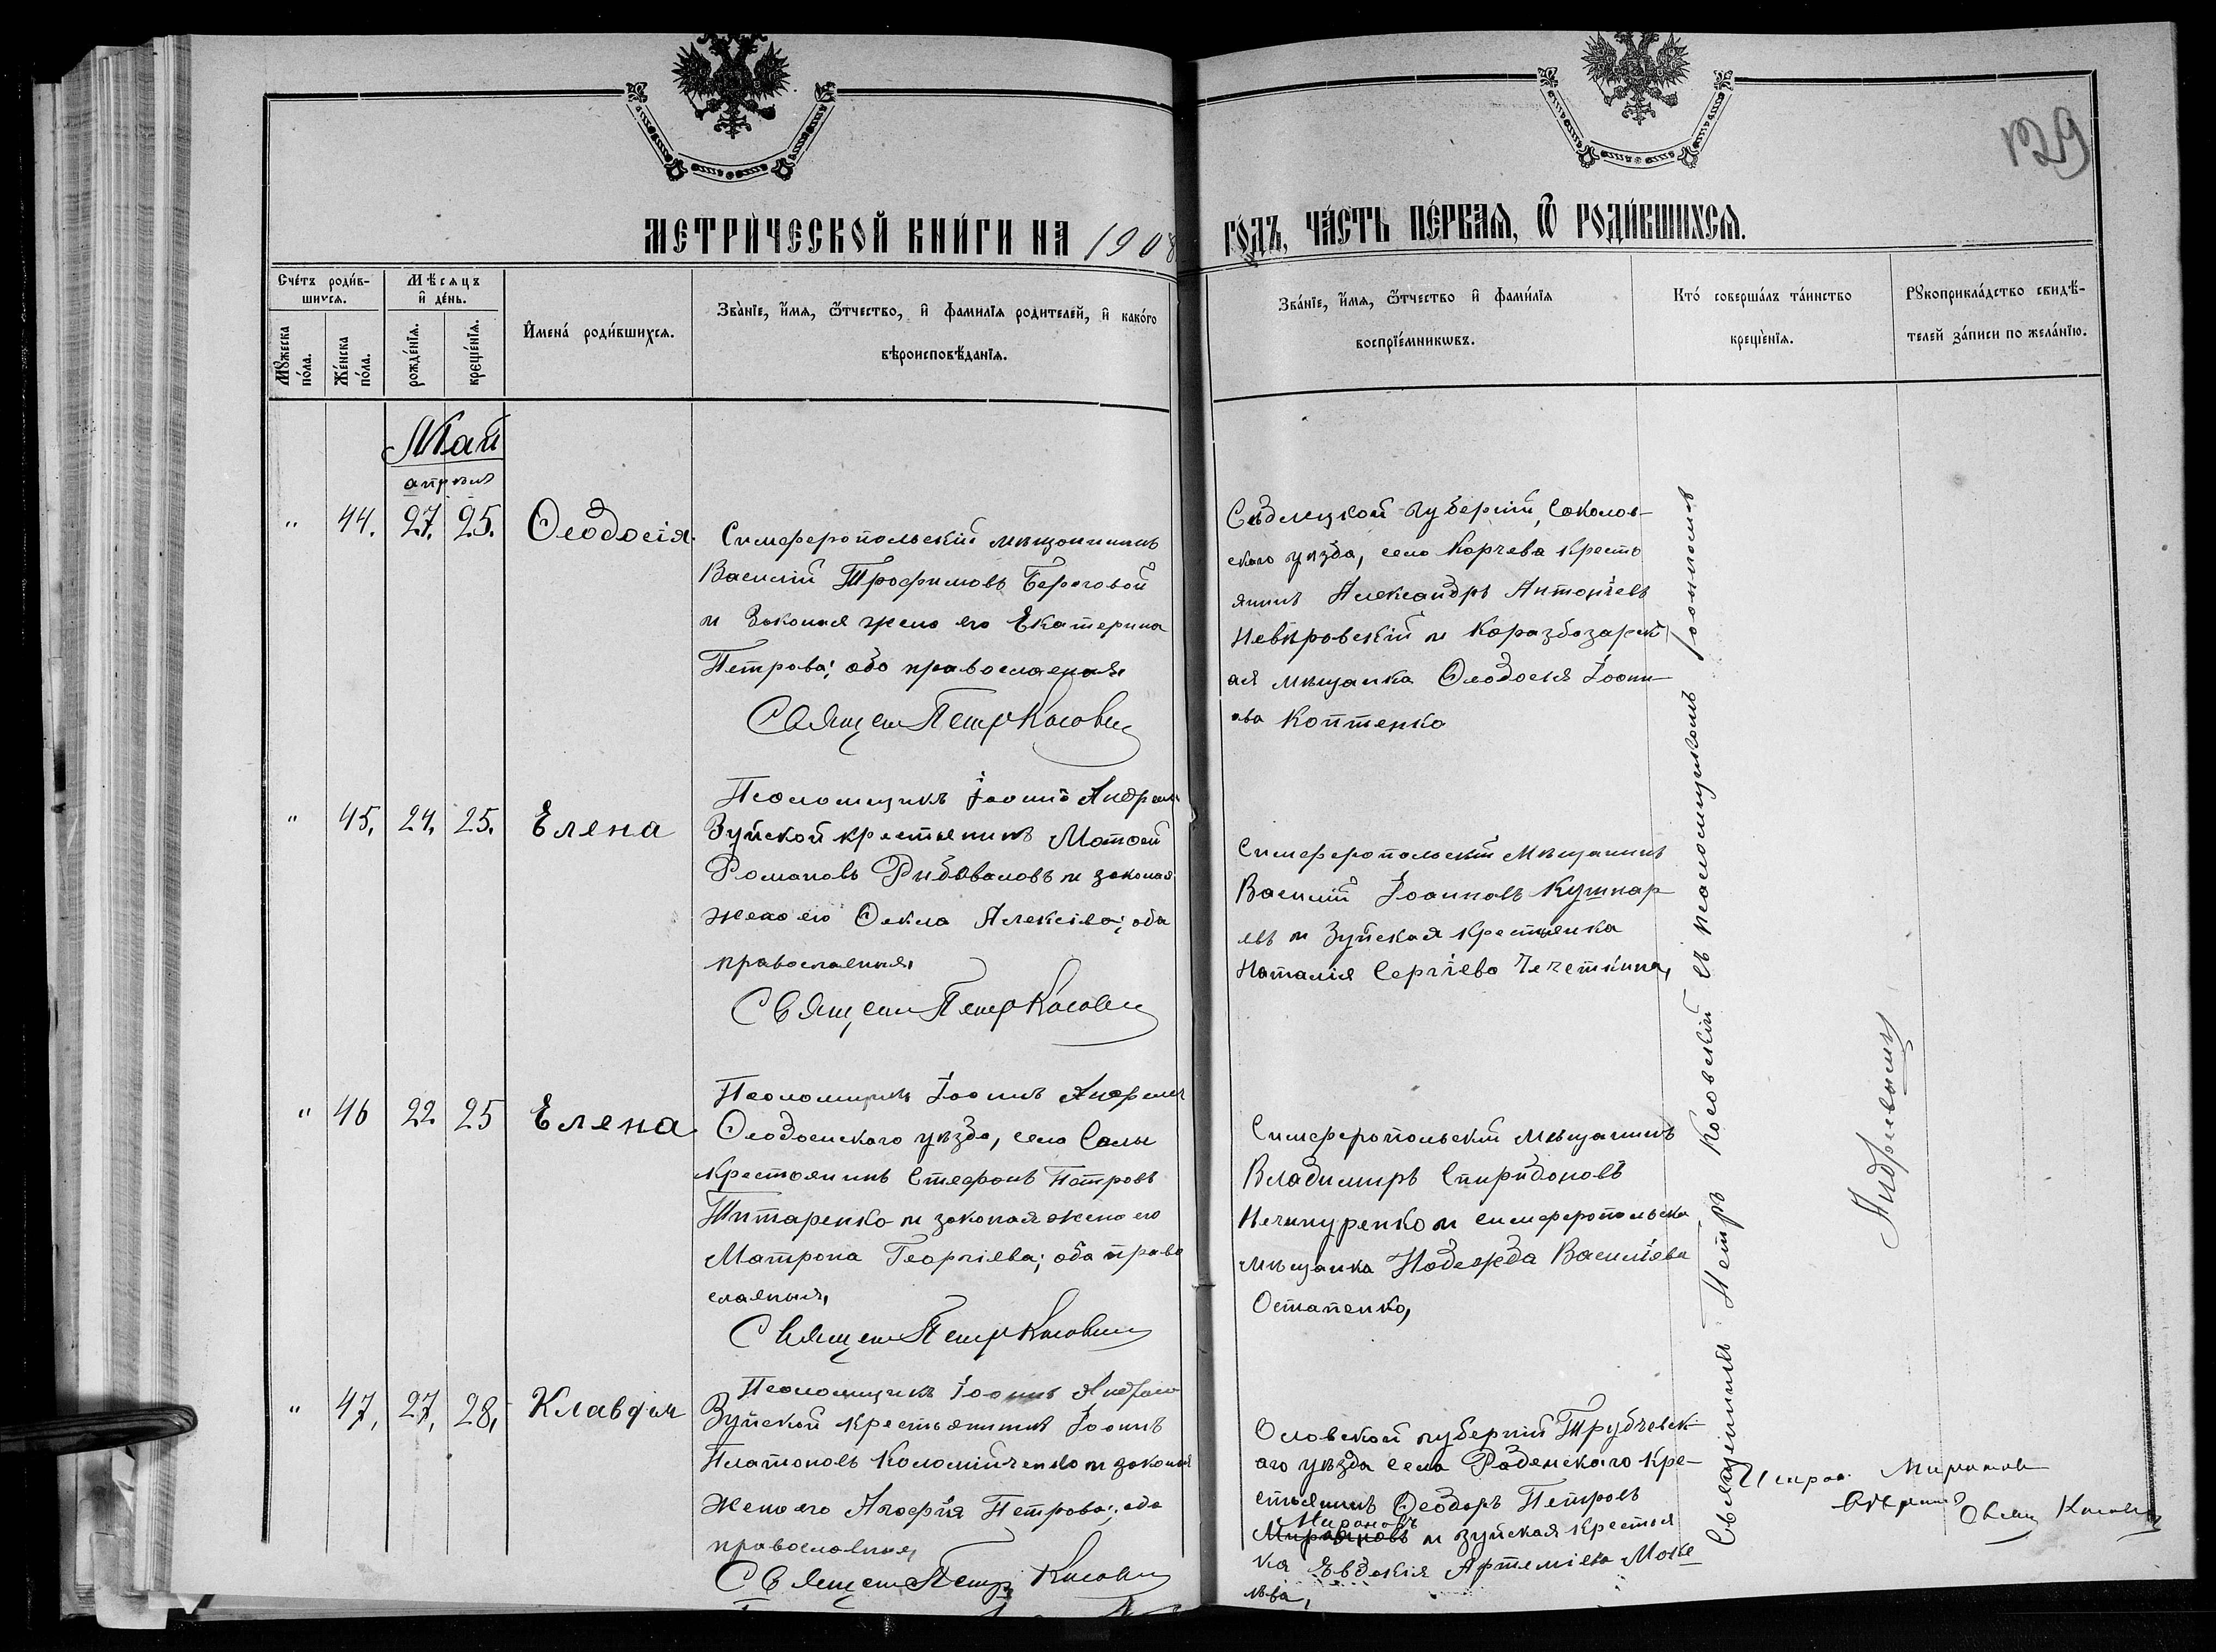 129
МЕТРИ́ЧЕСКОЙ КНИ́ГИ НА 1908
ГО́ДЪ, ЧА́СТЬ ПЕ́РВАѦ, Ѿ РОДИ́ВШИХСѦ.
Сче́тъ роди́в-
шихсѧ.
Мѣсѧцъ
и҆ де́нь.
Мꙋ́жеска
по́ла.
Же́нска
по́ла.
рожде́нїѧ.
креще́нїѧ.
И҆мена́ роди́вшихсѧ.
Зва́нїе, и҆́мѧ, ѻ҆́тчество, и҆ фами́лїѧ роди́телей, и҆ како́го
вѣроисповѣ́данїѧ.
Зва́нїе, и҆́мѧ, ѻ҆́тчество и҆ фами́лїѧ
воспрїе́мникѡвъ.
Кто́ соверша́лъ та́инство
креще́нїѧ.
Рꙋкоприкла́дство свидѣ́-
телей за́писи по жела́нїю.
Май
апрѣля
" 44. 27. 25. Ѳеодосія.
Симферопольскій мѣщанинъ
Василій Трофимовъ Береговой
и законая жена его Екатерина
Петрова; оба православныя
Священ Петр Косовск
Сѣдлецкой губерніи, Соколов-
скаго уѣзда, села Корчева кресть
янинъ Александръ Антоніевъ
Невѣровскій и Карабазарск
ая мѣщанка Ѳеодосія Іоан-
ова Коптенко
Псаломщикъ Іоаннъ Андреев
" 45. 24. 25. Елена
Зуйской крестьянинъ Матѳей
Романовъ Рыбоваловъ и законая
жена его Ѳекла Алексіева; оба
православныя,
Священ Петр Косовск
Симферопольскій Мѣщанинъ
Василій Іоанновъ Кушнар-
евъ и Зуйская крестьянка
Наталія Сергіева Чечеткина,
Псаломщикъ Іоаннъ Андреев
" 46 22 25 Елена
Ѳеодосійскаго уѣзда, села Салы
крестьянинъ Стефанъ Петровъ
Титаренко и законая жена его
Матрона Георгіева; оба право
славныя,
Священ Петр Косовск
Симферопольскій Мѣщанинъ
Владимиръ Спиридоновъ
Нечипуренко и симферопольска
мѣщанка Надежда Василіева
Остапенко,
Псаломщикъ Іоаннъ Андреев
" 47. 27. 28. Клавдія
Зуйской крестьянинъ Іоаннъ
Платоновъ Коломійченко и законая
жена его Агафія Петрова; оба
православныя,
Священ Петр Косовск
Орловской губерніи Трубчевск-
аго уѣзда села Раденскаго кре-
стьянинъ Ѳеодоръ Петровъ
Мироновъ
и зуйская крестья
ка Евдокія Артеміева Моке
ѣва,
Священникъ Петръ Косовскій съ псаломщикомъ Іоанномъ
Андреевымъ
Испров. Мироновъ
вѣрно Свящ Косовск